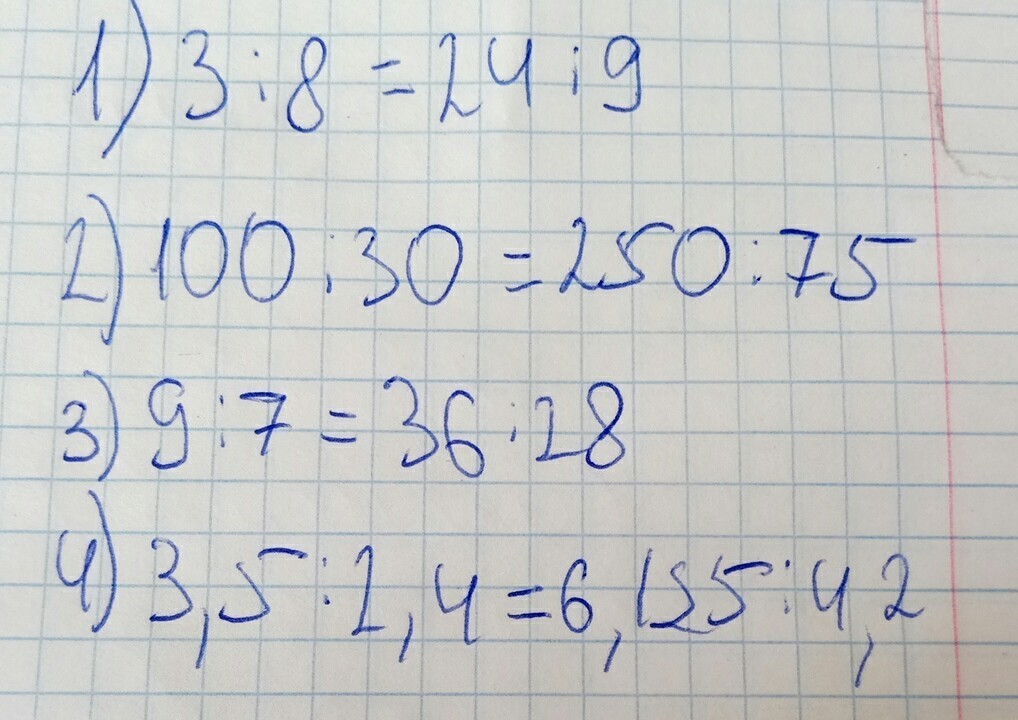 1) 3:8 = 24:9
2) 100:30 = 250:75
3) 9:7 = 36:28
4) 3,5:2,4 = 6,125:4,2